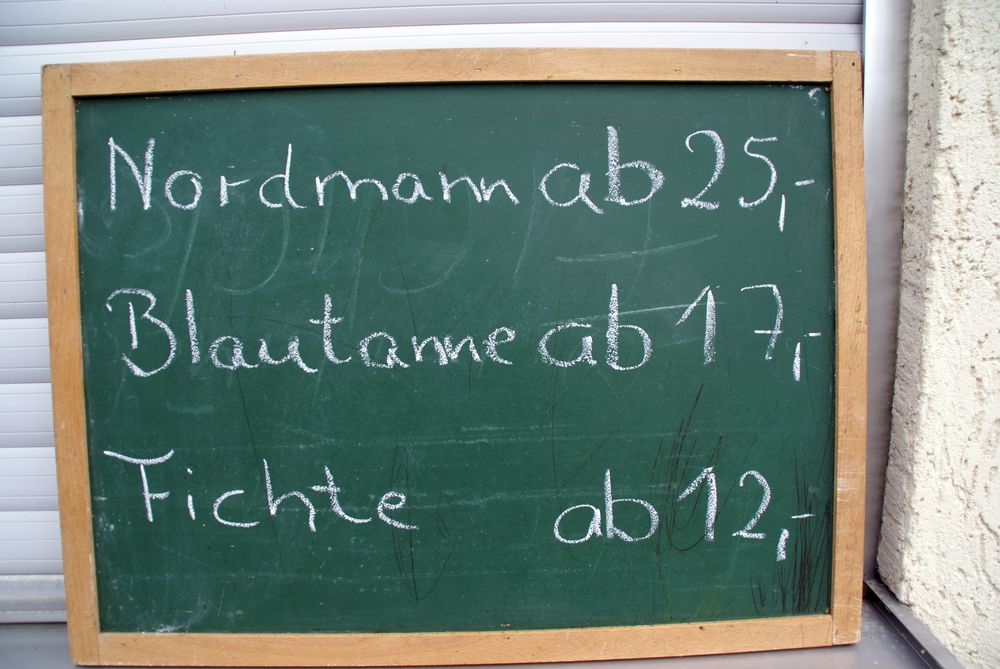 Nordmann ab 25,-
Blautanne ab 17,-
Fichte ab 12,-